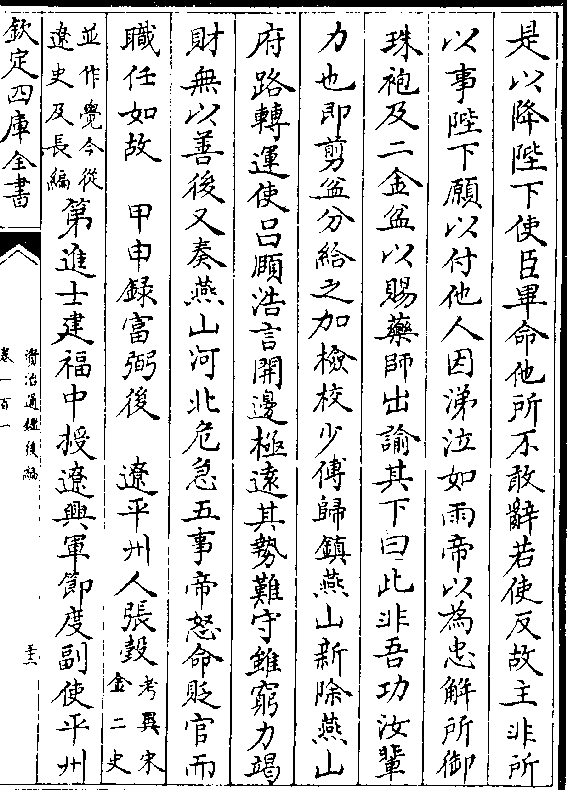 是以降陛下使臣畢命他所不敢辭若使反故主非所
以事陛下願以付他人因涕泣如雨帝以為忠解所御
珠袍及二金盆以賜藥師出諭其下曰此非吾功汝輩
力也即剪盆分給之加檢校少傅歸鎮燕山新除燕山
府路轉運使呂頤浩言開邊極遠其勢難守雖窮力竭
財無以善後又奏燕山河北危急五事帝怒命貶官而
職任如故　甲申録富弼後　遼平州人張瑴考異宋金二史
並作覺今從遼史及長編第進士建福中授遼興軍節度副使平州
欽定四庫全書
資治通鑑後編
卷一百一
三十三